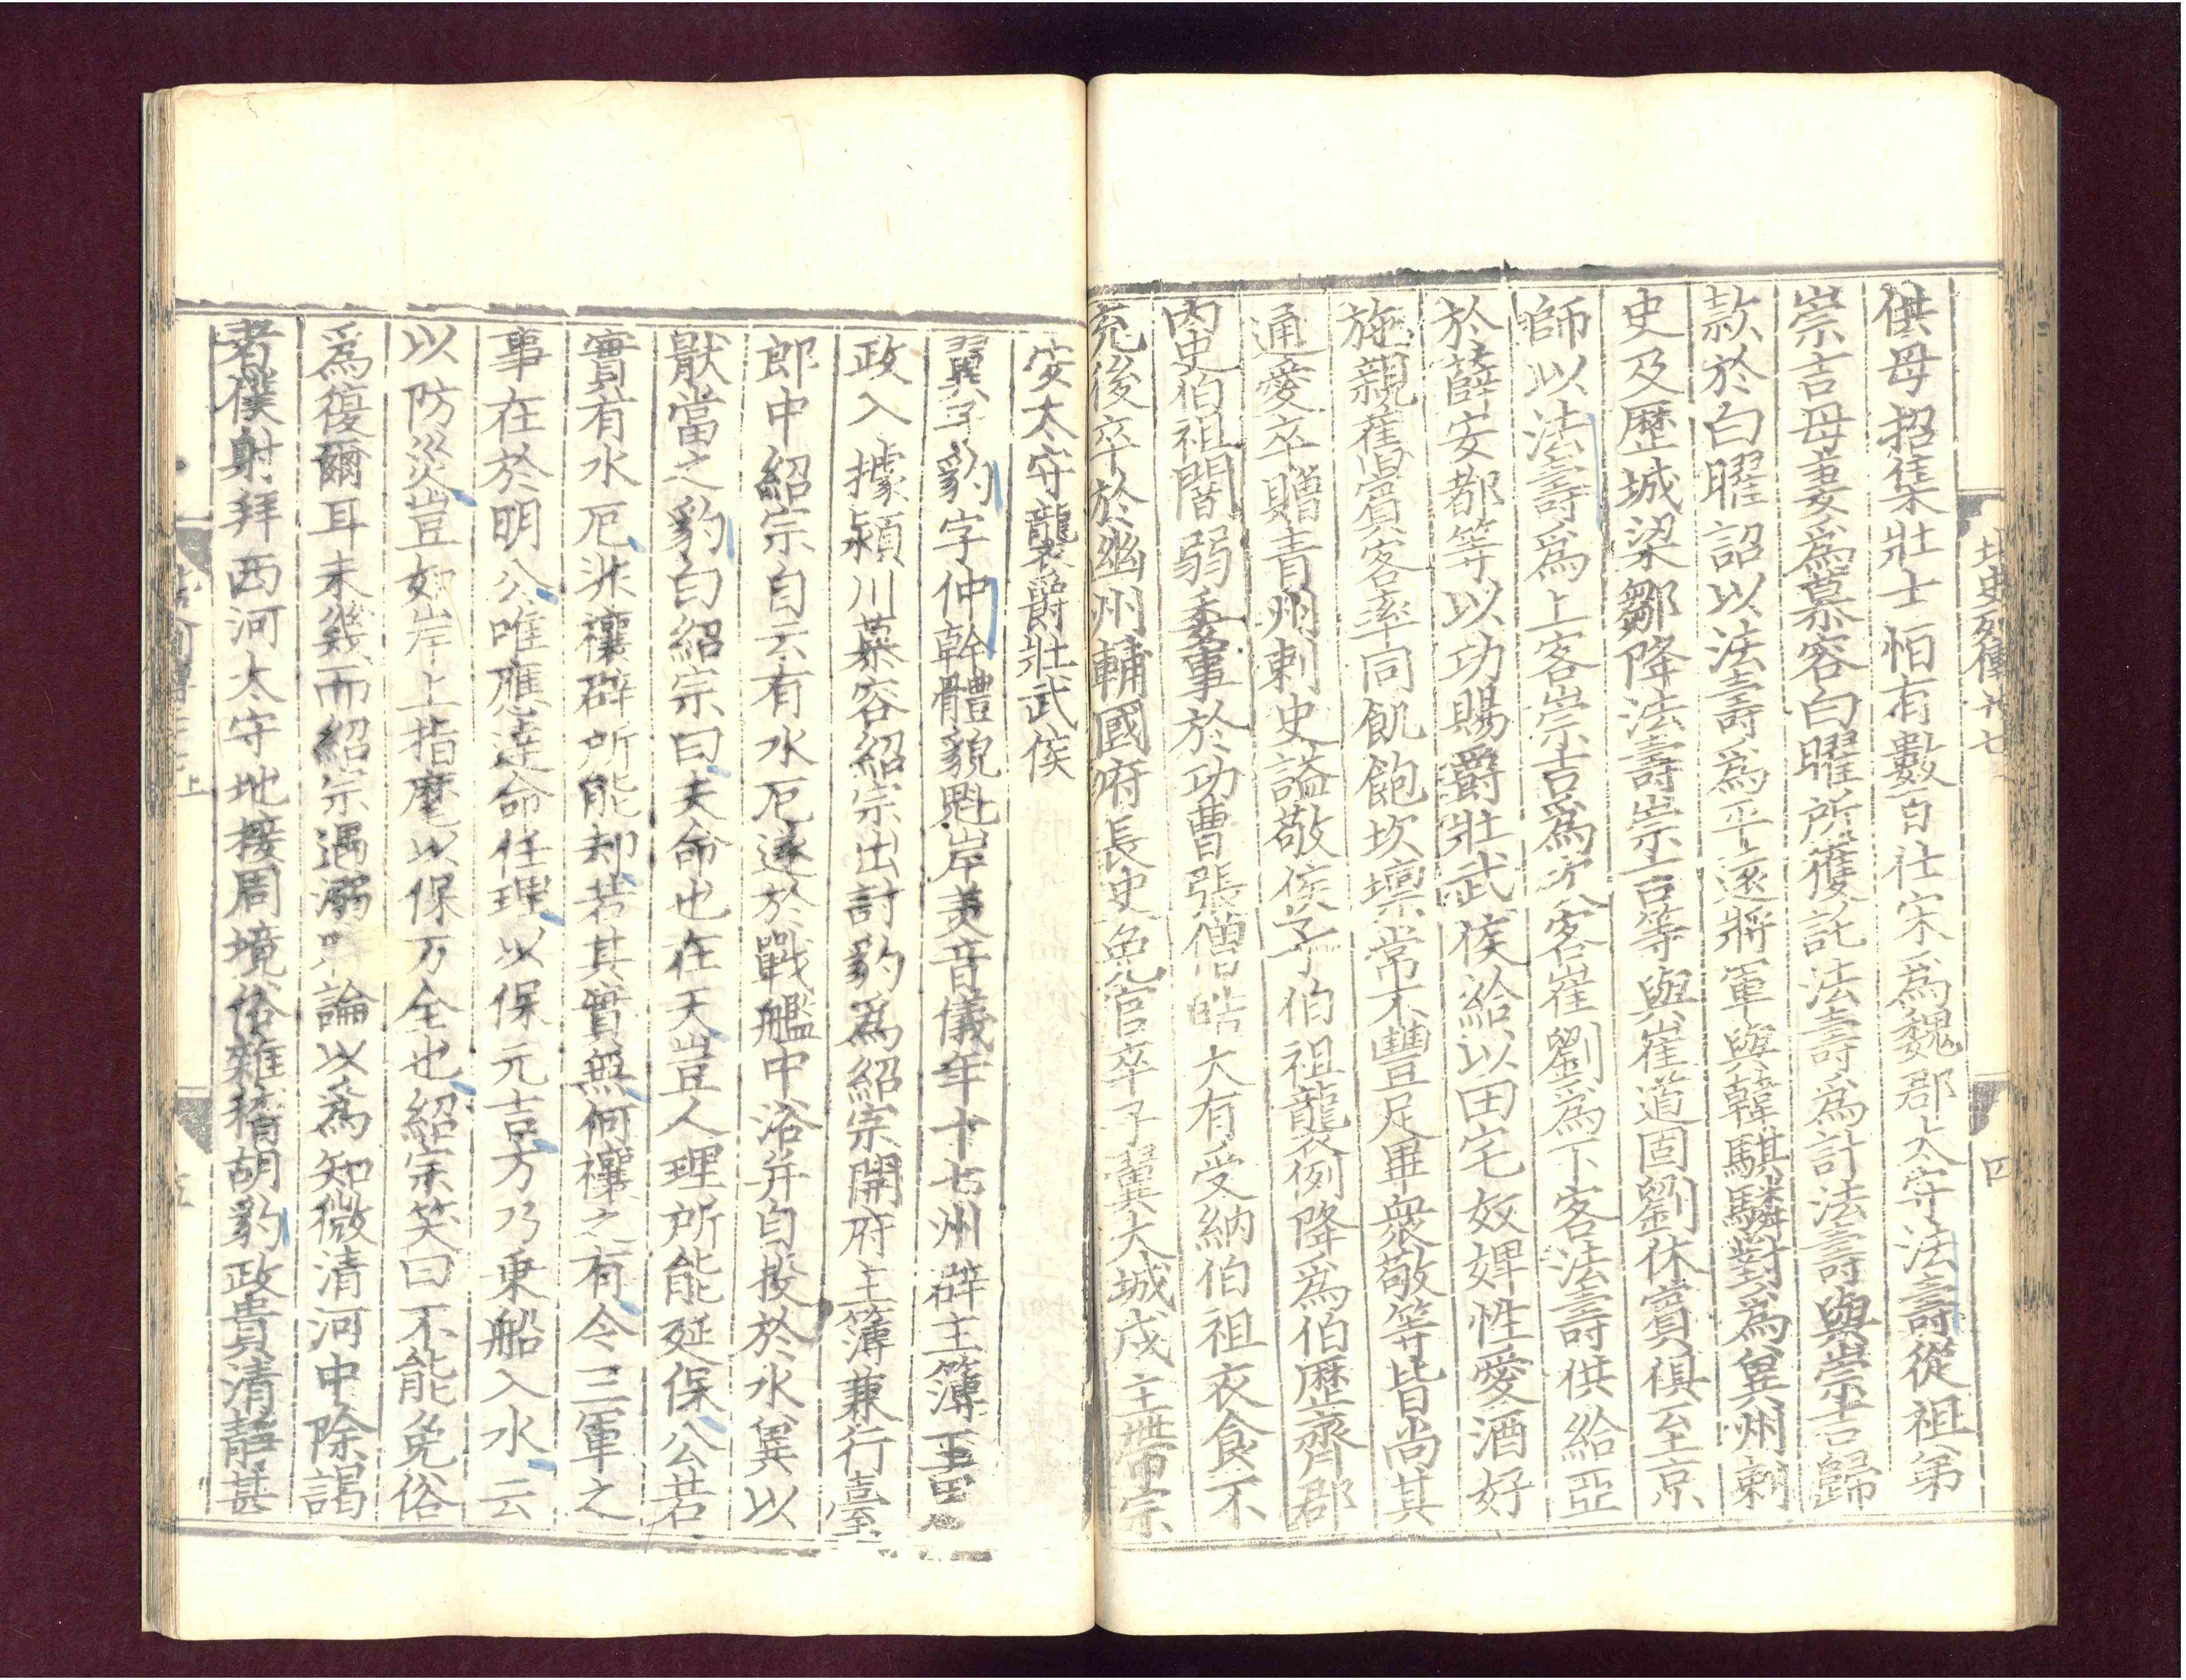 北史列傳廿七
四
供母招集壯士怕有數百仕宋爲魏郡太守法壽從祖弟
崇吉母妻爲慕容白曜所獲託法壽爲計法壽與崇吉歸
款於白曜詔以法壽爲平遠將軍與韓騏驎對爲兾州刺
史及歷城梁鄒降法壽崇吉等與崔道固劉休賓俱至京
師以法壽爲上客崇吉爲次客崔劉爲下客法壽供給亞
於薛安都等以功賜爵壯武侯給以田宅奴婢性愛酒好
施親舊賓客率同飢飽坎壈常不豐足畢衆敬等皆尚其
通愛卒贈青州刺史謚敬侯子伯祖襲例降爲伯歷齊郡
內史伯祖闇弱委事於功曹張僧皓大有受納伯祖衣食不
充後卒於幽州輔國府長史免官卒子翼大城戍主帶宗
安太守襲爵壯武侯
翼子豹字仲幹體貌魁岸美音儀年十七州辟主簿王思
政入據潁川慕容紹宗出討豹爲紹宗開府主簿兼行臺
郎中紹宗自云有水厄遂於戰艦中浴并自投於水兾以
猒當之豹白紹宗曰夫命也在天豈人理所能延保公若
實有水厄非禳辟所能却若其實無何禳之有今三軍之
事在於明公唯應達命任理以保元吉方乃乗船入水云
以防災豈如岸上指麾以保万全也紹宗笑曰不能免俗
爲復爾耳未幾而紹宗遇溺時論以爲知微清河中除謁
者僕射拜西河太守地接周境俗雜稽胡豹政貴清靜甚